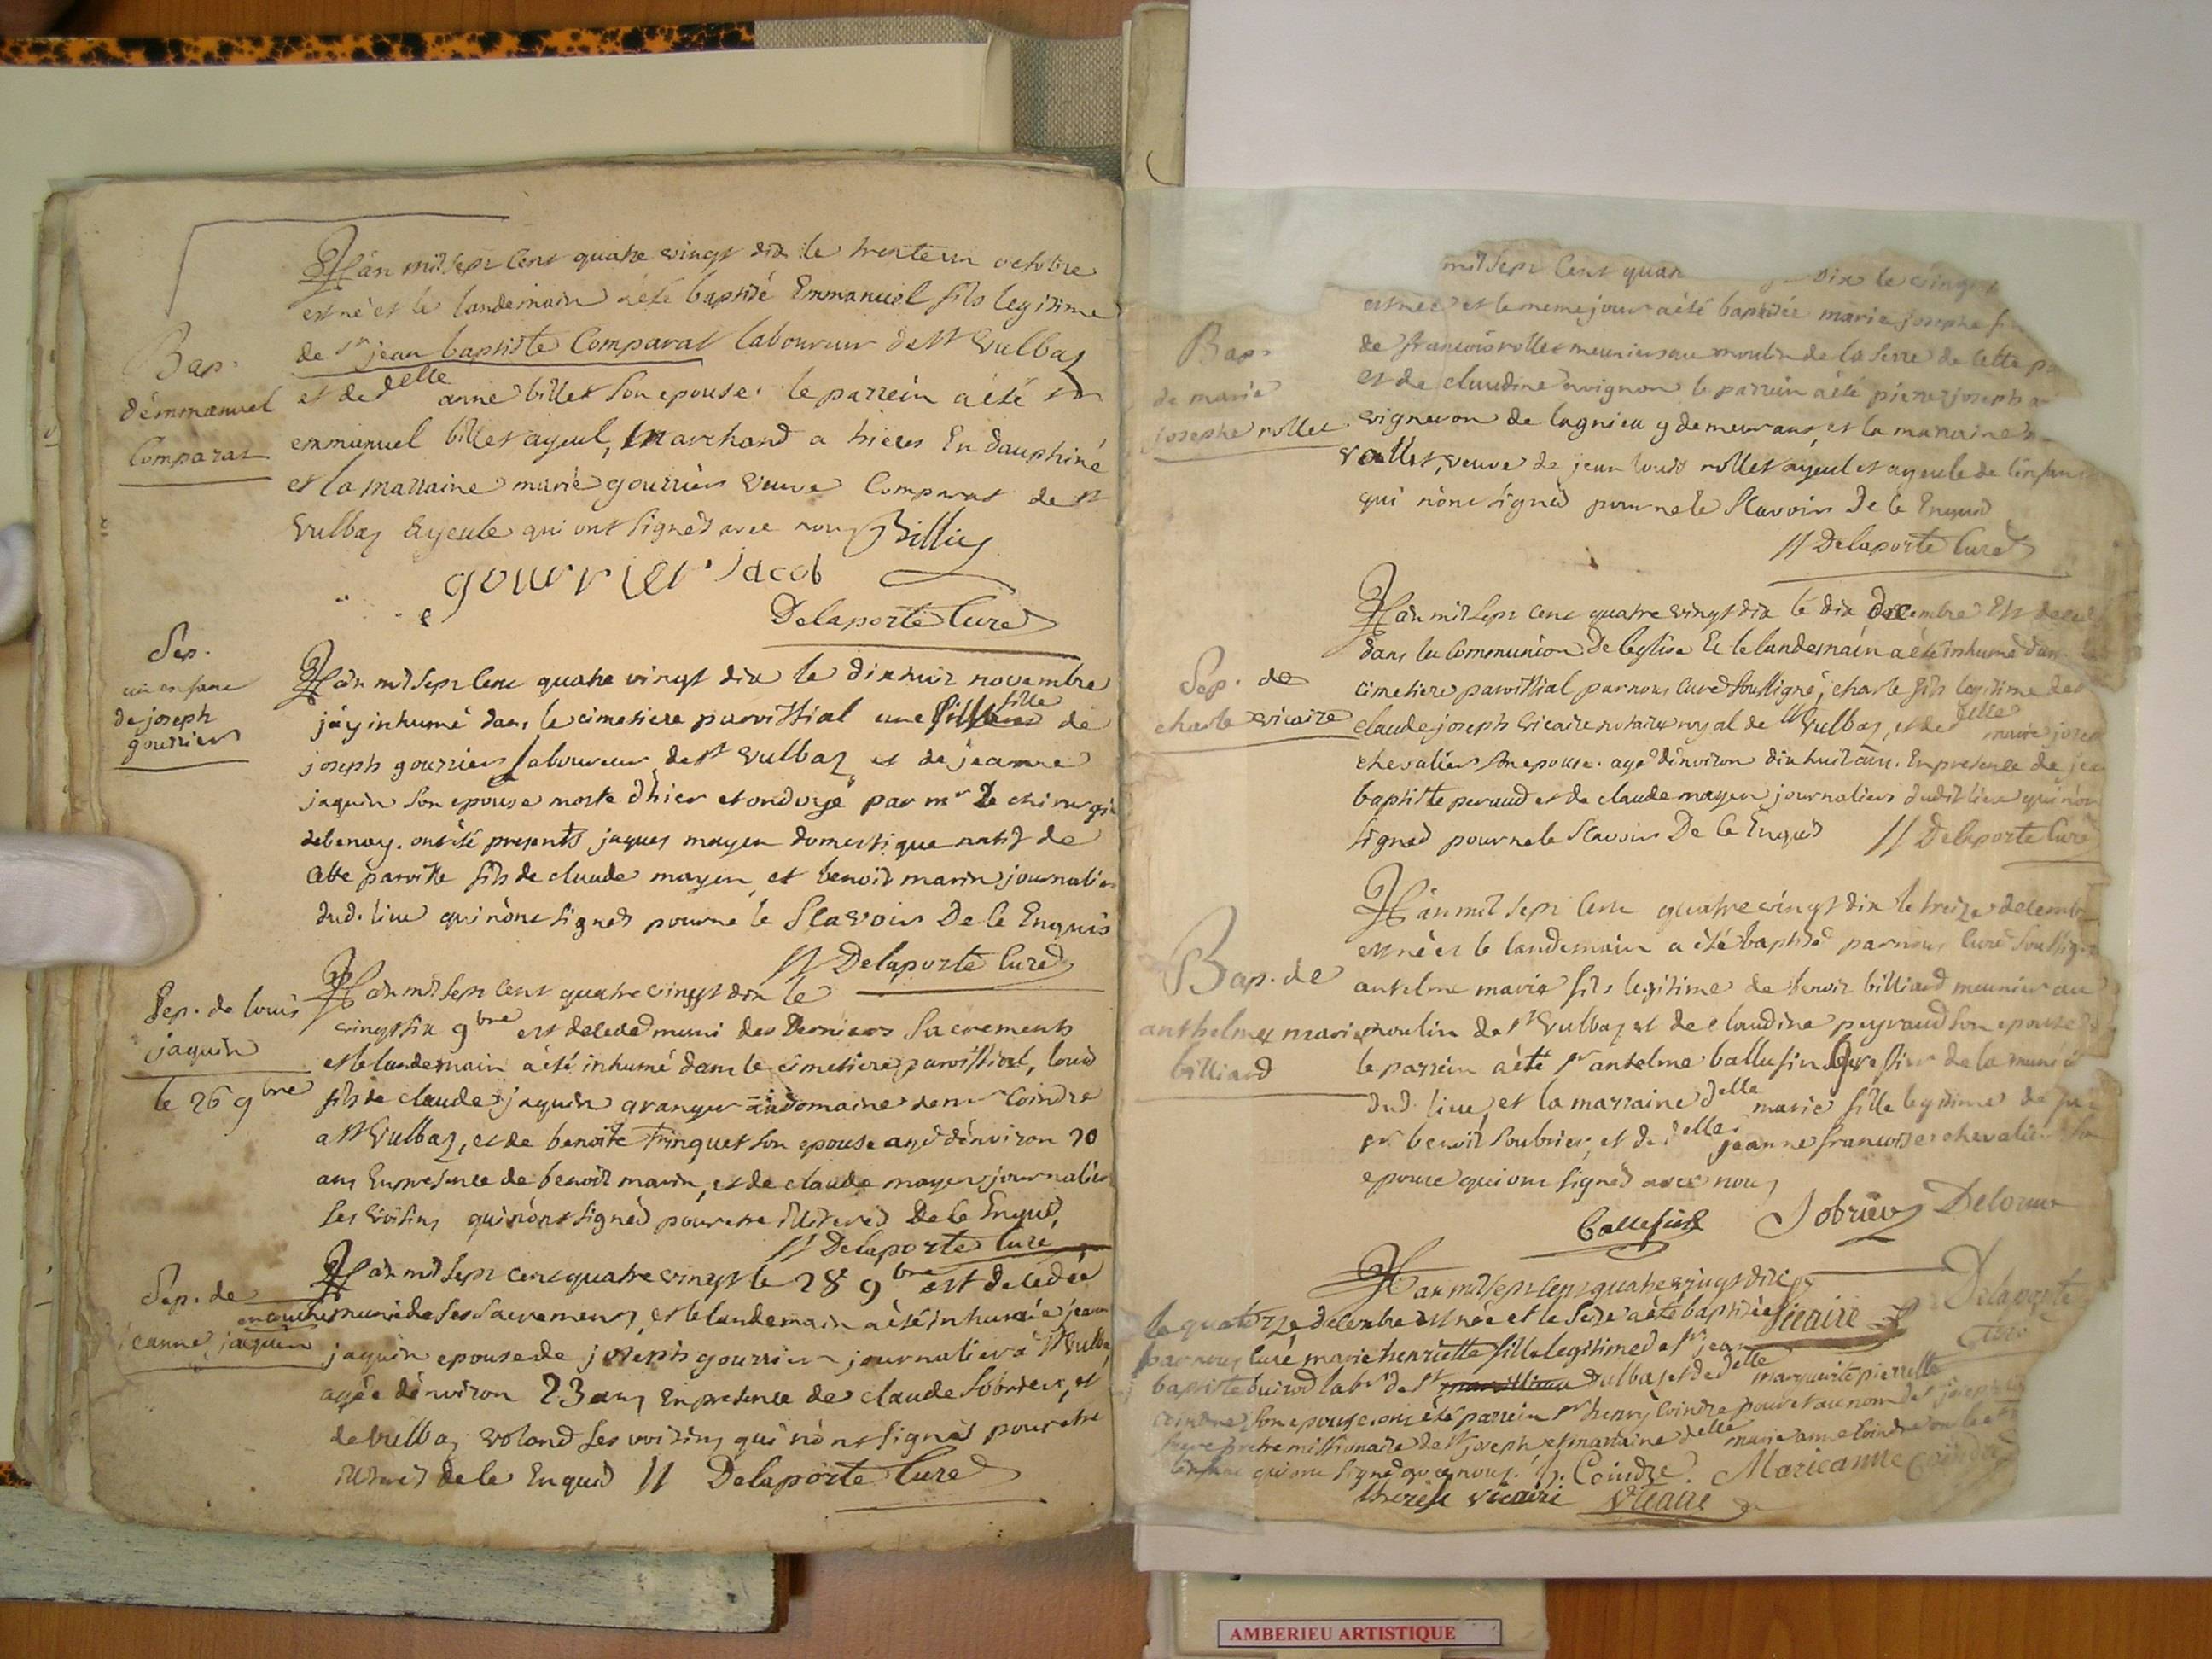 L'an mil sept cent quatre vingt dix le trente un octobre
est né et le landemain a été baptisé Emmanuel fils legitime
de Sr jean baptiste Comparat laboureur de St Vulbaz
et de delle anne billet son epouse. le parrein a été sr
Bap.
d'émmanuel
Comparat
emmanuel billet ayeul, marchand a hieres En dauphiné
et la marraine marie gourrier veuve Comparat de st
Vulbaz Ayeule qui ont signés avec nous Billiez
gourrier jacob
Delaporte Curé
Sep.
un enfant
de joseph
gourrier
L'an mil sept cent quatre vingt dix le dix huit novembre
j'ay inhumé dans le cimetiere paroissial une fille de
joseph gourrier laboureur de st Vulbaz, et de jeanne
jaquin son epouse morte d'hier et ondoyé par mr le chirurgien
debenay. ont été presents jaques mayen domestique natif de
cette paroisse fils de claude mayen, et benoit marin journalier
dud. lieu qui n'ont signés pour ne le sçavoir De ce Enquis
// Delaporte Curé
Sep. de louis
jaquin
le 26 9bre
L'an mil sept cent quatre vingt dix le
vingt six 9bre est decedé muni des Derniers Sacrements
et le landemain a été inhumé dans le cimetiere paroissial, louis
fils de claude jaquin granger au domaine de mr Coindre
a St Vulbaz, et de benoite Trinquet son epouse agé d'énviron 20
ans En presence de benoit marin, et de claude mayen journaliers
ses voisins qui n'ont signés pour etre illiterés De ce Enquis,
// Delaporte Curé
Sep. de
jeanne jaquin
L'an mil sept cent quatre vingt le 28 9bre est decedée
en couche munie de ses sacremens, et le landemain a été inhumée jeanne
jaquin epouse de joseph gourrier journalier à St Vulbaz
agée d'énviron 23 ans, En presence de claude Sobrieux, et
de vulbaz voland ses voisins qui n'ont signés pour etre
illiterés de ce Enquis // Delaporte Curé
mil sept cent quatr dix le vingt
est née et le meme jour a été baptisée marie josephe
de francois rollet meunier au moulin de la serre de cette
et de claudine avignon le parrein a été pierre joseph
Bap.
de marie
josephe rollet
vigneron de lagnieu y demeurant, et la marraine
rollet, veuve de jean louis rollet ayeul et ayeule de l'enfant
qui n'ont signés pour ne le sçavoir De ce Enquis
// Delaporte Curé
L'an mil sept cent quatre vingt dix le dix Decembre Est decedé
dans la Communion De l'eglise Et le landemain a été inhumé dans
cimetiere paroissial par nous Curé soussigné, charle fils legitime de
Sep. de
charle vicaire
claude joseph vicaire notaire royal de St Vulbaz, et de delle marie joseph
chevalier son epouse. agé d'énviron dix huit ans. En presence de jean
baptiste peraud et de claude mayen journaliers dudit lieu qui n'ont
signés pour ne le sçavoir De ce Enquis // Delaporte Curé
L'an mil sept cent quatre vingt dix le treize decembre
est né et le landemain a été baptisé par nous Curé soussigné
Bap. de
anthelme marie
billiard
anselme marie fils legitime de benoit billiard meunier au
moulin de st Vulbaz et de claudine peyraud son epouse
le parrein a été sr anselme ballufin greffier de la munici
dud. lieu, et la marraine delle marie fille legitime de
sr benoit Soubrier, et de delle jeanne francoise chevalier son
epouse qui ont signés avec nous
Sobrieux Delorme
L'an mil sept cent quatre vingt dix
le quatorze decembre est née et le soir a été baptisée Vicaire
Delaporte Curé
par nous Curé marie henriette fille legitime de sr jean
baptiste buisod labr de St Vulbaz et de delle marguerite pierrette
Coindre son epouse. ont été parrein sr henry Coindre pour et au nom de sr joseph
frere pretre missionaire de St joseph et marraine delle marie anne Coindre
qui ont signés avec nous. h. Coindre. Marieanne Coindre
therese vicaire Vicaire
AMBERIEU ARTISTIQUE